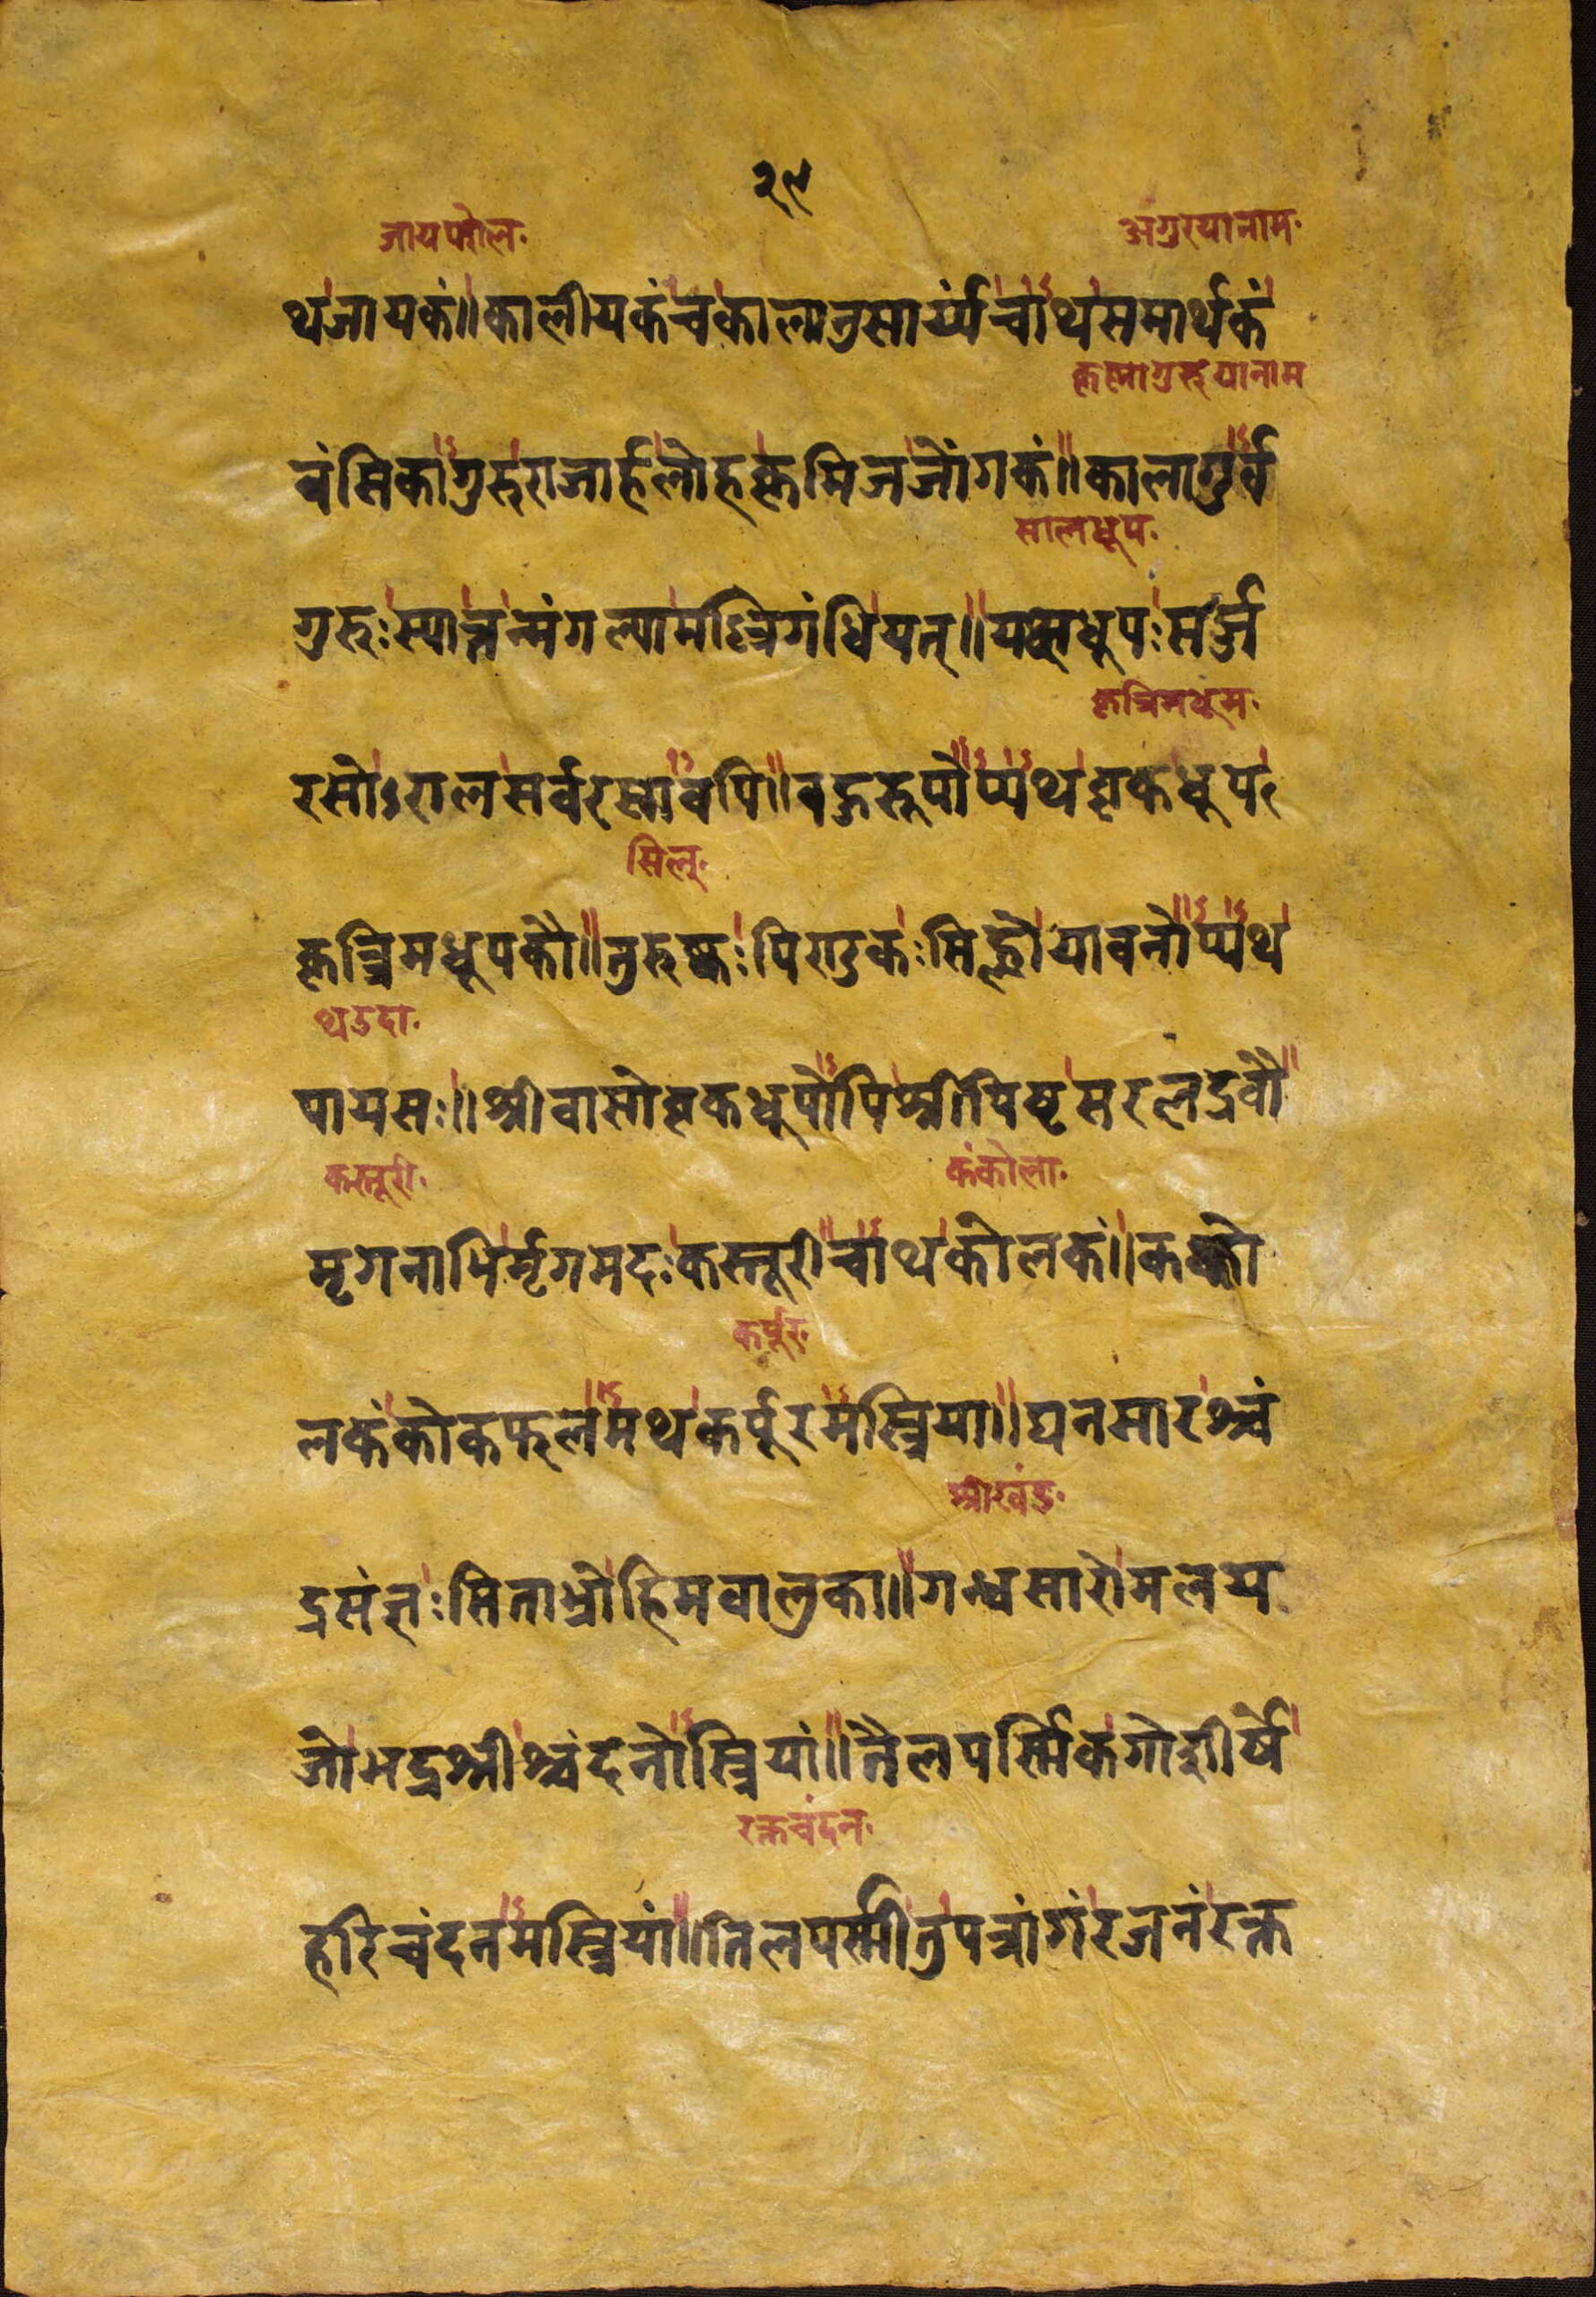 २९
जायफोल· अगुरयानाम·
थजायकं॥कालीयकंचकालानुसार्य्यंचाथसमार्थकं
कृष्णागुरुयानाम
वंसिकागुरुराजार्हलोहकृमिजजोंगकं॥कालागुर्व
सालधूप·
गुरुःस्यात्तन्मंगल्यामल्लिगंधियत्॥यक्षधूपःसर्ज्ज
कृत्रिमधूम·
रसोःरालसर्वरसावपि॥वहुरूपोप्यथवृकधूप
सिल्·
कृत्त्रिमधूपकौ॥तुरुष्कःपिराडकःसिह्लोयावनोप्यथ
थडदा·
पायसः॥श्रीवासोवृकधूपोपिश्रीपिष्टसरलद्रवौ
कस्तूरी· कंकोला·
मृगनाभिर्मृगमदःकस्तूरीचाथकोलकं॥कक्को
कर्पूर·
लकंकोकफलमथकर्पूरमस्त्रिया॥घनसारश्चं
श्रीखंड·
द्रसंज्ञःसिताभ्रोहिमवालुका॥गन्धसारोमलय
जोभद्रश्रीश्चंदनोस्त्रियां॥तैलपर्स्मिकगोशीर्षे
रक्तचंदन·
हरिचंदनमस्त्रियां॥तिलपर्स्मीतुपत्रांगंरजनंरक्त